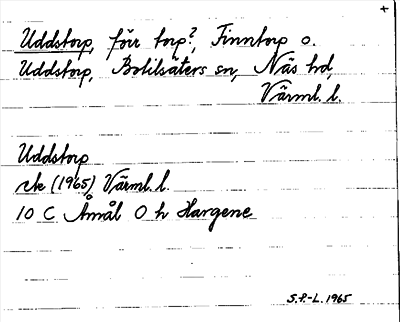 +
Uddstorp, förr torp?, Finntorp o.
Uddstorp, Botilsäters sn, Näs hd,
Värml. l.
Uddstorp
ek (1965) Värml. l.
10 C Åmål 0 h Hargene
S.P.-L. 1965